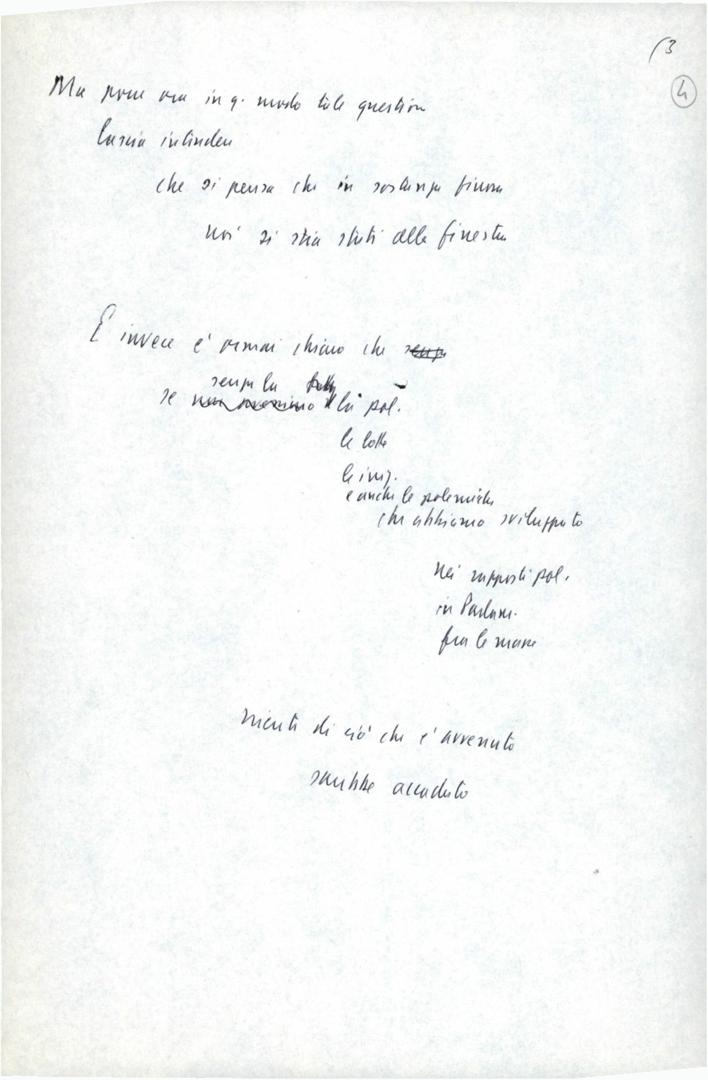 (3
4
Ma porre ora in q. modo tale question
lascia intendere
che si pensa che in sostanza finora
noi si stia stati alla finestra
E invece è ormai chiaro che senza
senza la
se la pol.
le lotte
le iniz.
e anche le polemiche
che abbiamo sviluppato
nei rapporti pol.
in Parlam.
fra le masse
niente di ciò che è avvenuto
sarebbe accaduto